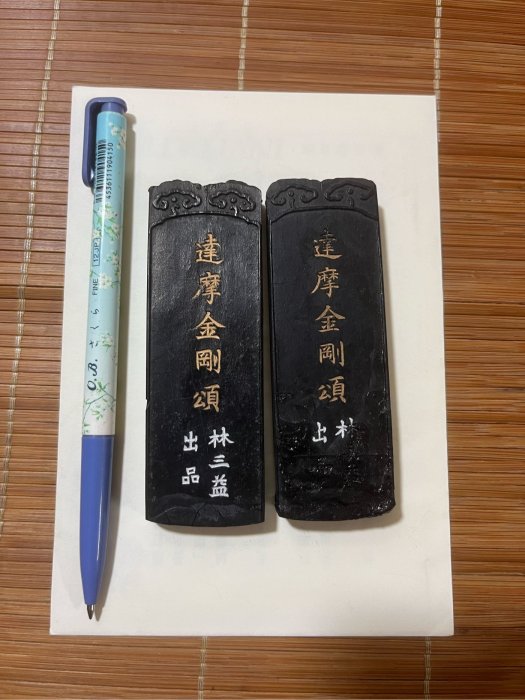 4536111904150
O.B. さくら FINE 12-JP1
達摩金剛頌
林三益
出品
達摩金剛頌
出